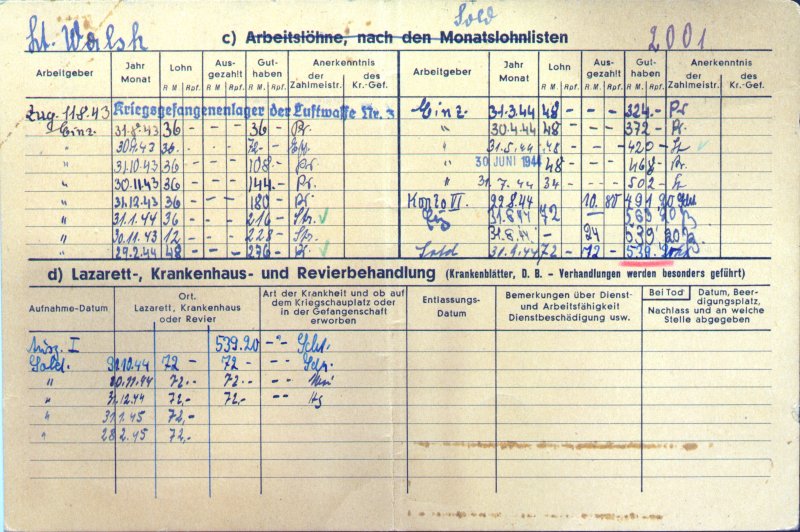 Lt. Walsh Sold 2001
c) Arbeitslöhne, nach den Monatslohnlisten
Arbeitgeber Jahr Monat Lohn R M. Rpf. Ausgezahlt R M. Rpf. Guthaben R M. Rpf. Anerkenntnis der Zahlmeistr. des Kr.-Gef.
Zug. 11.8.43 Kriegsgefangenenlager der Luftwaffe Nr. 3
Einz. 31.8.43 36 - - - 36 - Pr.
" 30.9.43 36. - - - 72 -
" 31.10.43 36 - - - 108 - Pr.
" 30.11.43 36 - - - 144. - Pr.
" 31.12.43 36 - - - 180 - Pr.
" 31.1.44 36 - - - 216 -
" 30.11.43 12 - - - 228 -
" 29.2.44 48 - - - 276 -
Arbeitgeber Jahr Monat Lohn R M. Rpf. Ausgezahlt R M. Rpf. Guthaben R M. Rpf. Anerkenntnis der Zahlmeistr. des Kr.-Gef.
Einz. 31.3.44 48 - - - 324 - Pr
" 30.4.44 48 - - - 372 - Pr.
" 31.5.44 48 - - - 420 -
" 30 JUNI 1944 48 - - - 468 - Pr
" 31.7.44 34 - - - 502 -
Konto VI. 22.8.44 10 80 491 20
31.8.44 72 - 563 20
31.8.44 24 539 20
Sold 31.9.44 72 - 72 - 539.20
d) Lazarett-, Krankenhaus- und Revierbehandlung (Krankenblätter, D. B. - Verhandlungen werden besonders geführt)
Aufnahme-Datum Ort. Lazarett, Krankenhaus oder Revier Art der Krankheit und ob auf dem Kriegschauplatz oder in der Gefangenschaft erworben Entlassungs-Datum Bemerkungen über Dienst- und Arbeitsfähigkeit Dienstbeschädigung usw. Bei Tod Datum, Beerdigungsplatz, Nachlass und an welche Stelle abgegeben
Ausz. I 539.20 -"-
Sold. 31.10.44 72 - 72 - -"-
" 30.11.44 72.- 72.- -"-
" 31.12.44 72,- 72,- -"-
" 31.1.45 72,-
" 28.2.45 72,-